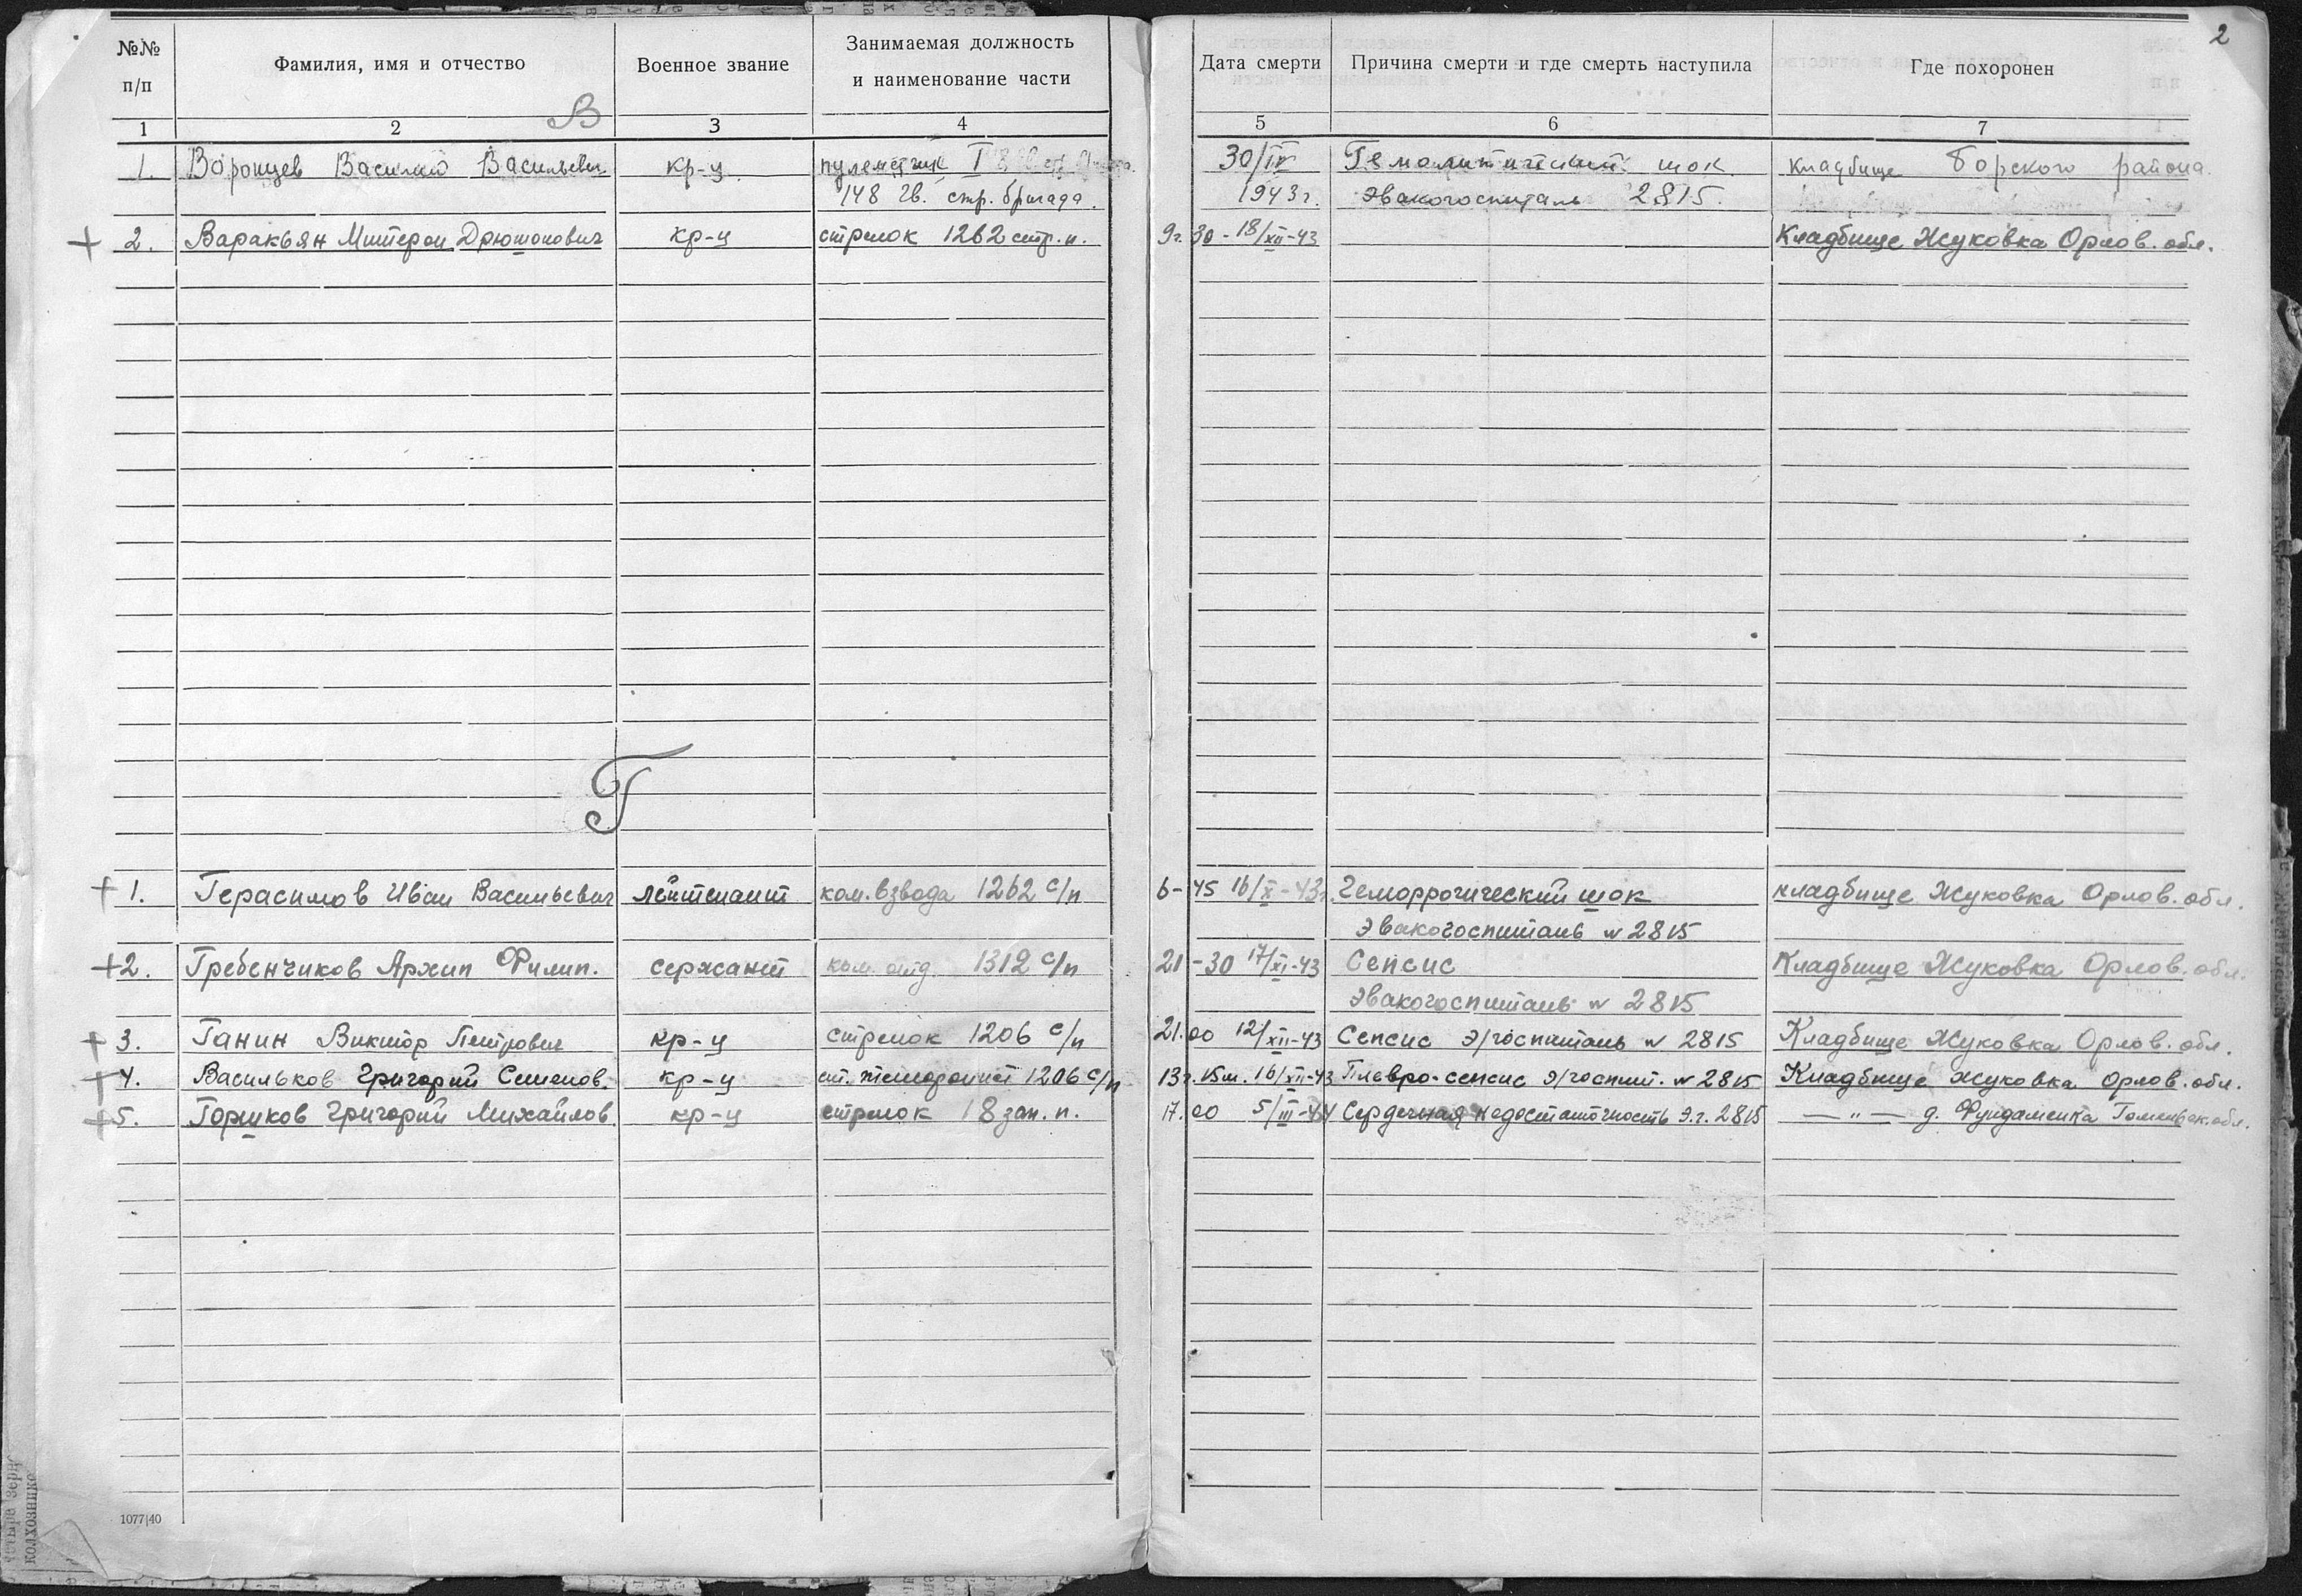 2
№№ п/п
Фамилия, имя и отчество
Военное звание
Занимаемая должность и наименование части
Дата смерти
Причина смерти и где смерть наступила
Где похоронен
1 2 3 4 5 6 7
В
1. Воронцев Василий Васильевич кр-ц пулеметчик I 30/IV Гемолитический шок кладбище Борского района.
148 гв. стр. бригада. 1943 г. Эвакогоспиталь 2815.
+ 2. Варакьян Мкртерон кр-ц стрелок 1262 стр. п. 9 г. 30 - 18/XII-43 Кладбище Жуковка Орлов. обл.
Г
+ 1. Герасимов Иван Васильевич лейтенант ком. взвода 1262 с/п 6-45 16/X-43 г. Геморрогический шок кладбище Жуковка Орлов. обл.
Эвакогоспиталь № 2815
+ 2. Гребенчиков Архип Филип. сержант ком. отд. 1312 с/п 21-30 17/XI-43 Сепсис Кладбище Жуковка Орлов. обл.
Эвакогоспиталь № 2815
+ 3. Ганин Виктор Петрович кр-ц стрелок 1206 с/п 21.00 12/XII-43 Сепсис Э/госпиталь № 2815 Кладбище Жуковка Орлов. обл.
+ 4. Васильков Григорий Семенов. кр-ц 1206 с/п 13 г. 15 м. 16/XII-43 Плевро-сепсис э/госпит. № 2815 Кладбище Жуковка Орлов. обл.
+ 5. Горшков Григорий Михайлов. кр-ц стрелок 18 зап. п. 17.00 5/III-44 Сердечная недостаточность Э.г. 2815 — " — д. Фундаменка Гомельск. обл.
1077|40